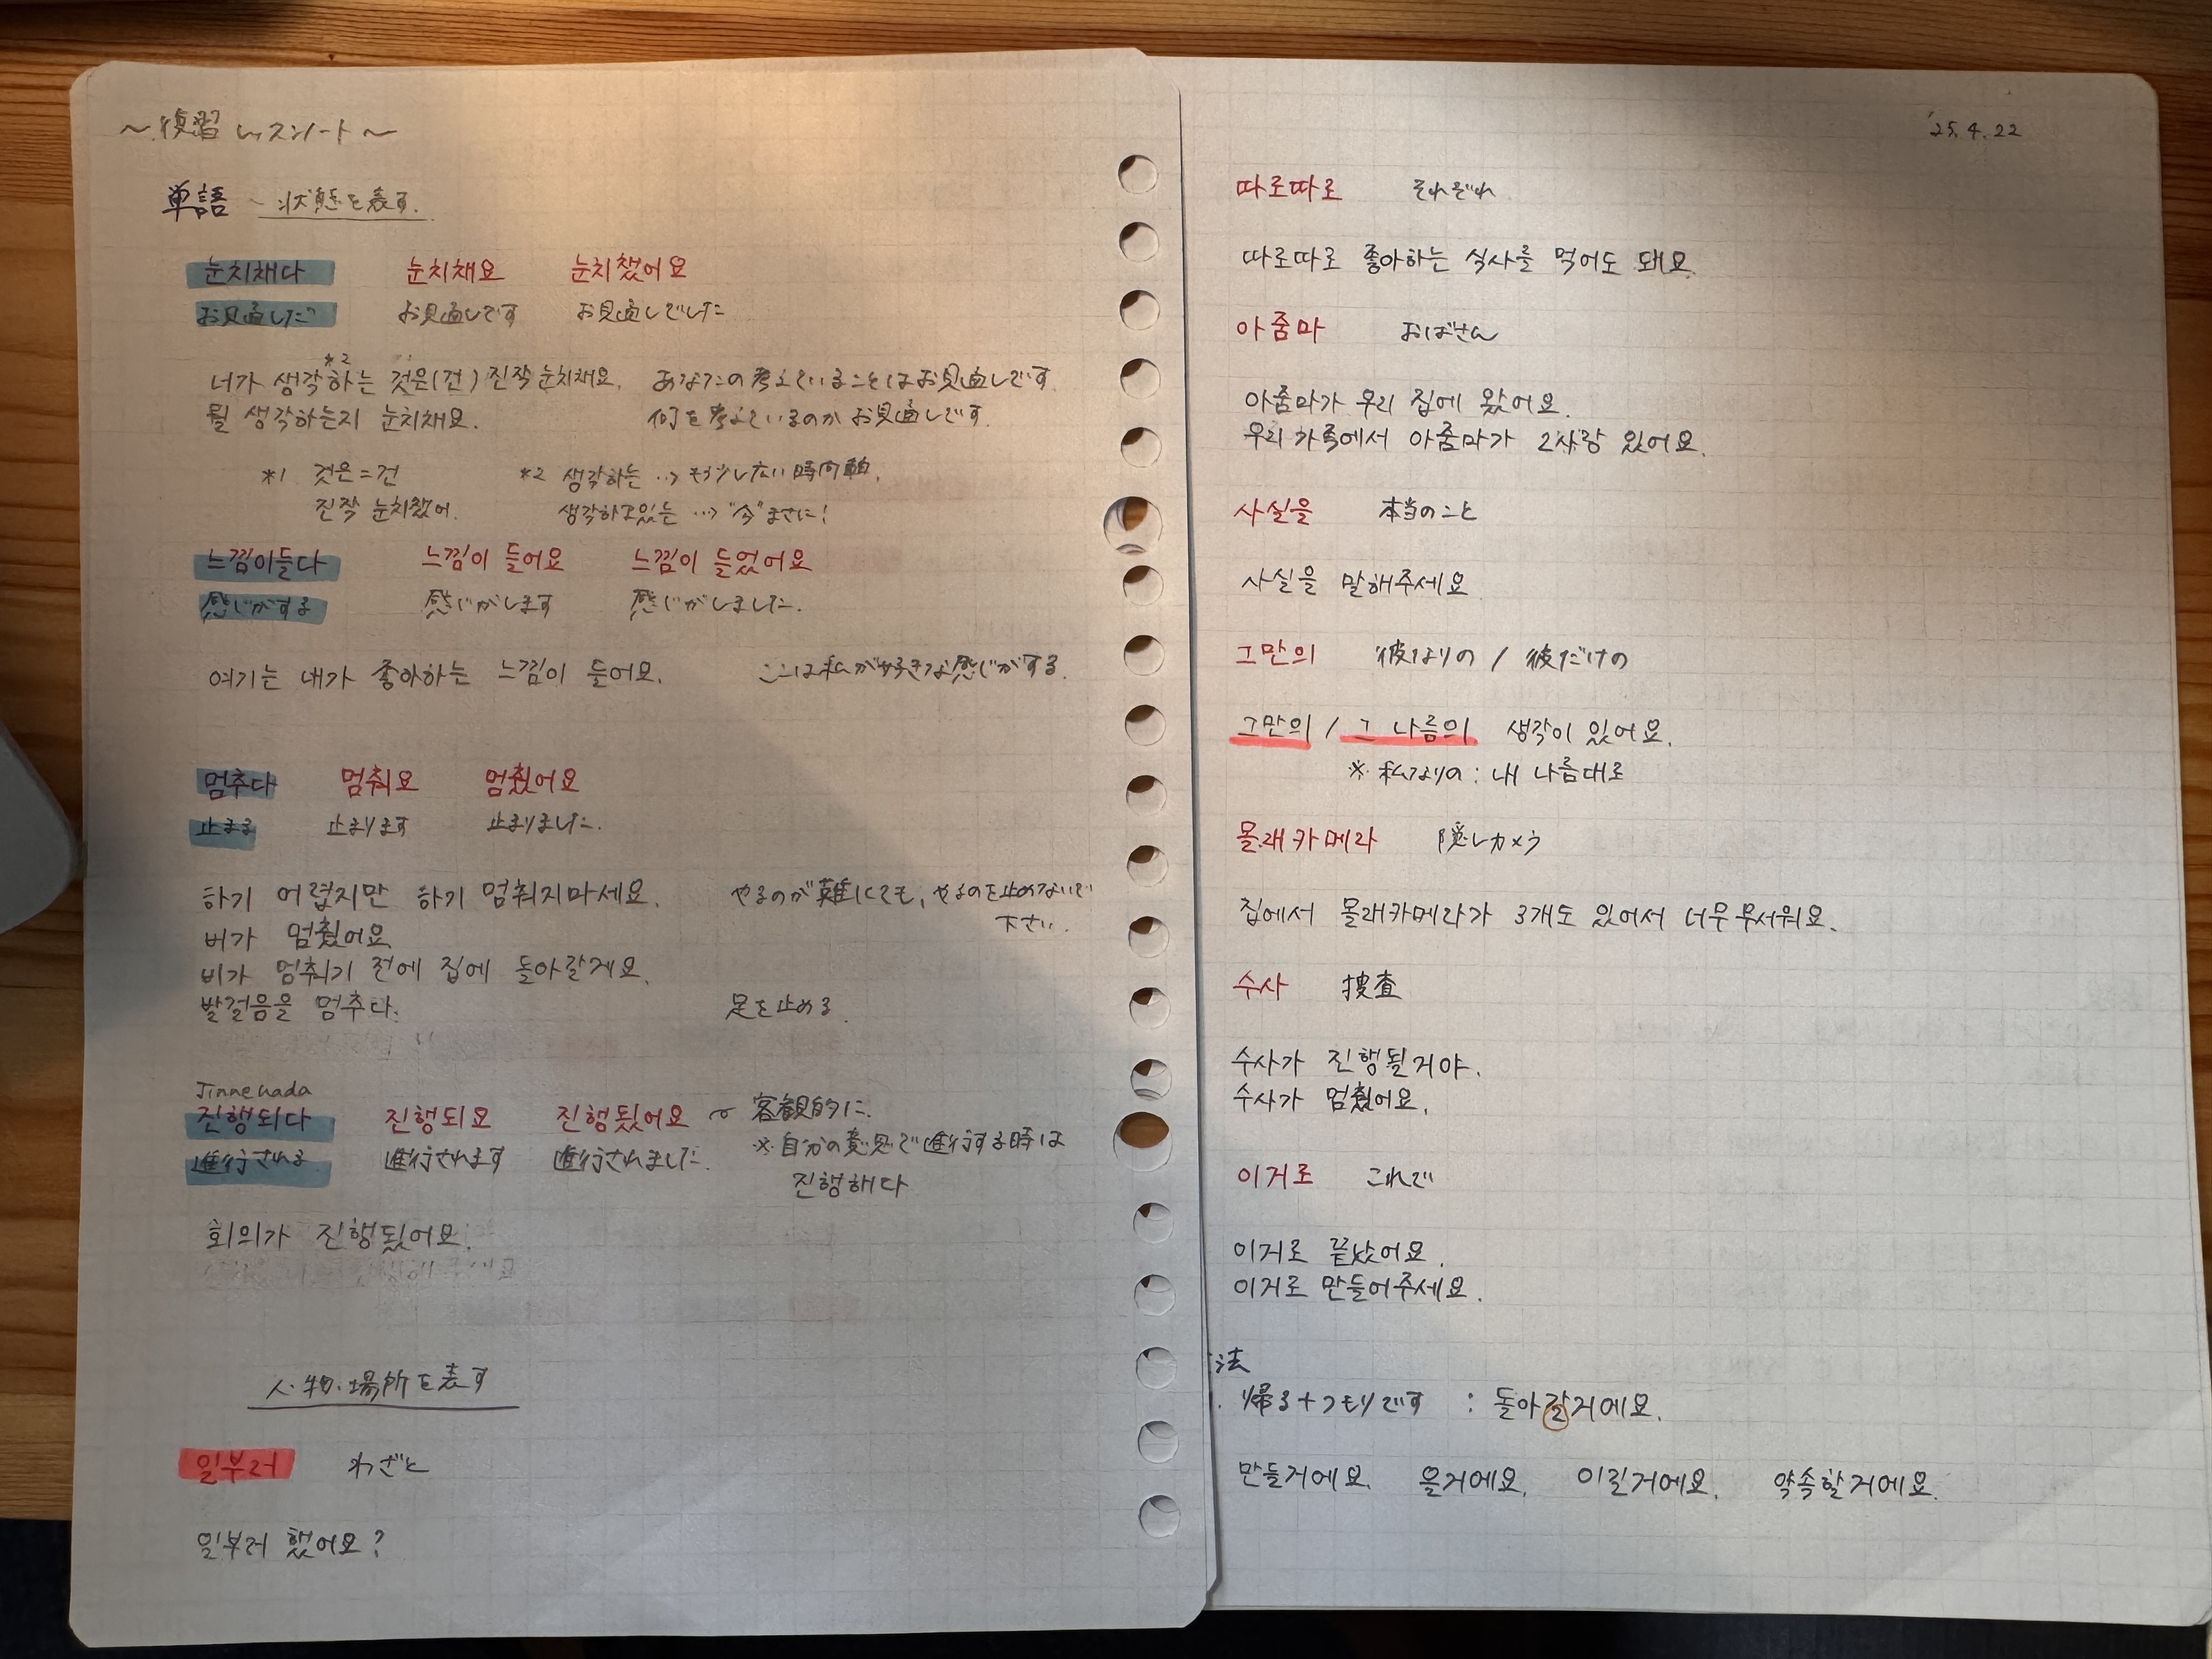 〜復習 レッスンノート〜
単語 〜状態を表す.
눈치채다 눈치채요 눈치챘어요
お見通しだ お見通しです お見通しでした
*2
너가 생각하는 것은(건) 진작 눈치채요. あなたの考えていることはお見通しです.
뭘 생각하는지 눈치채요. 何を考えているのかお見通しです.
*1 것은=건 *2 생각하는 ‥> もう少し広い時間軸.
진작 눈치챘어. 생각하고있는 …> "今"まさに!
느낌이들다 느낌이 들어요 느낌이 들었어요
感じがする 感じがします 感じがしました.
여기는 내가 좋아하는 느낌이 들어요. ここは私が好きな感じがする.
멈추다 멈춰요 멈췄어요
止まる 止まります 止まりました.
하기 어렵지만 하기 멈춰지마세요. やるのが難しくても, やるのを止めないで
下さい.
비가 멈췄어요.
비가 멈춰기 전에 집에 돌아갈게요.
발걸음을 멈추다. 足を止める.
Jinneuada
진행되다 진행되요 진행됬어요 客観的に.
進行される 進行されます 進行されました. ※自分の意思で進行する時は
진행해다
회의가 진행됬어요.
人・物・場所を表す
일부러 わざと
일부러 했어요?
'25. 4. 22
따로따로 それぞれ
따로따로 좋아하는 식사를 먹어도 돼요.
아줌마 おばさん
아줌마가 우리 집에 왔어요.
우리 가족에서 아줌마가 2사람 있어요.
사실을 本当のこと
사실을 말해주세요
그만의 彼なりの / 彼だけの
그만의 / 그 나름의 생각이 있어요.
※ 私なりの : 내 나름대로
몰래카메라 隠しカメラ
집에서 몰래카메라가 3개도 있어서 너무 무서워요.
수사 捜査
수사가 진행될거야.
수사가 멈췄어요.
이거로 これで
이거로 끝났어요.
이거로 만들어주세요.
法
. 帰る+つもりです : 돌아갈거에요.
만들거에요. 울거에요. 이길거에요. 약속할거에요.